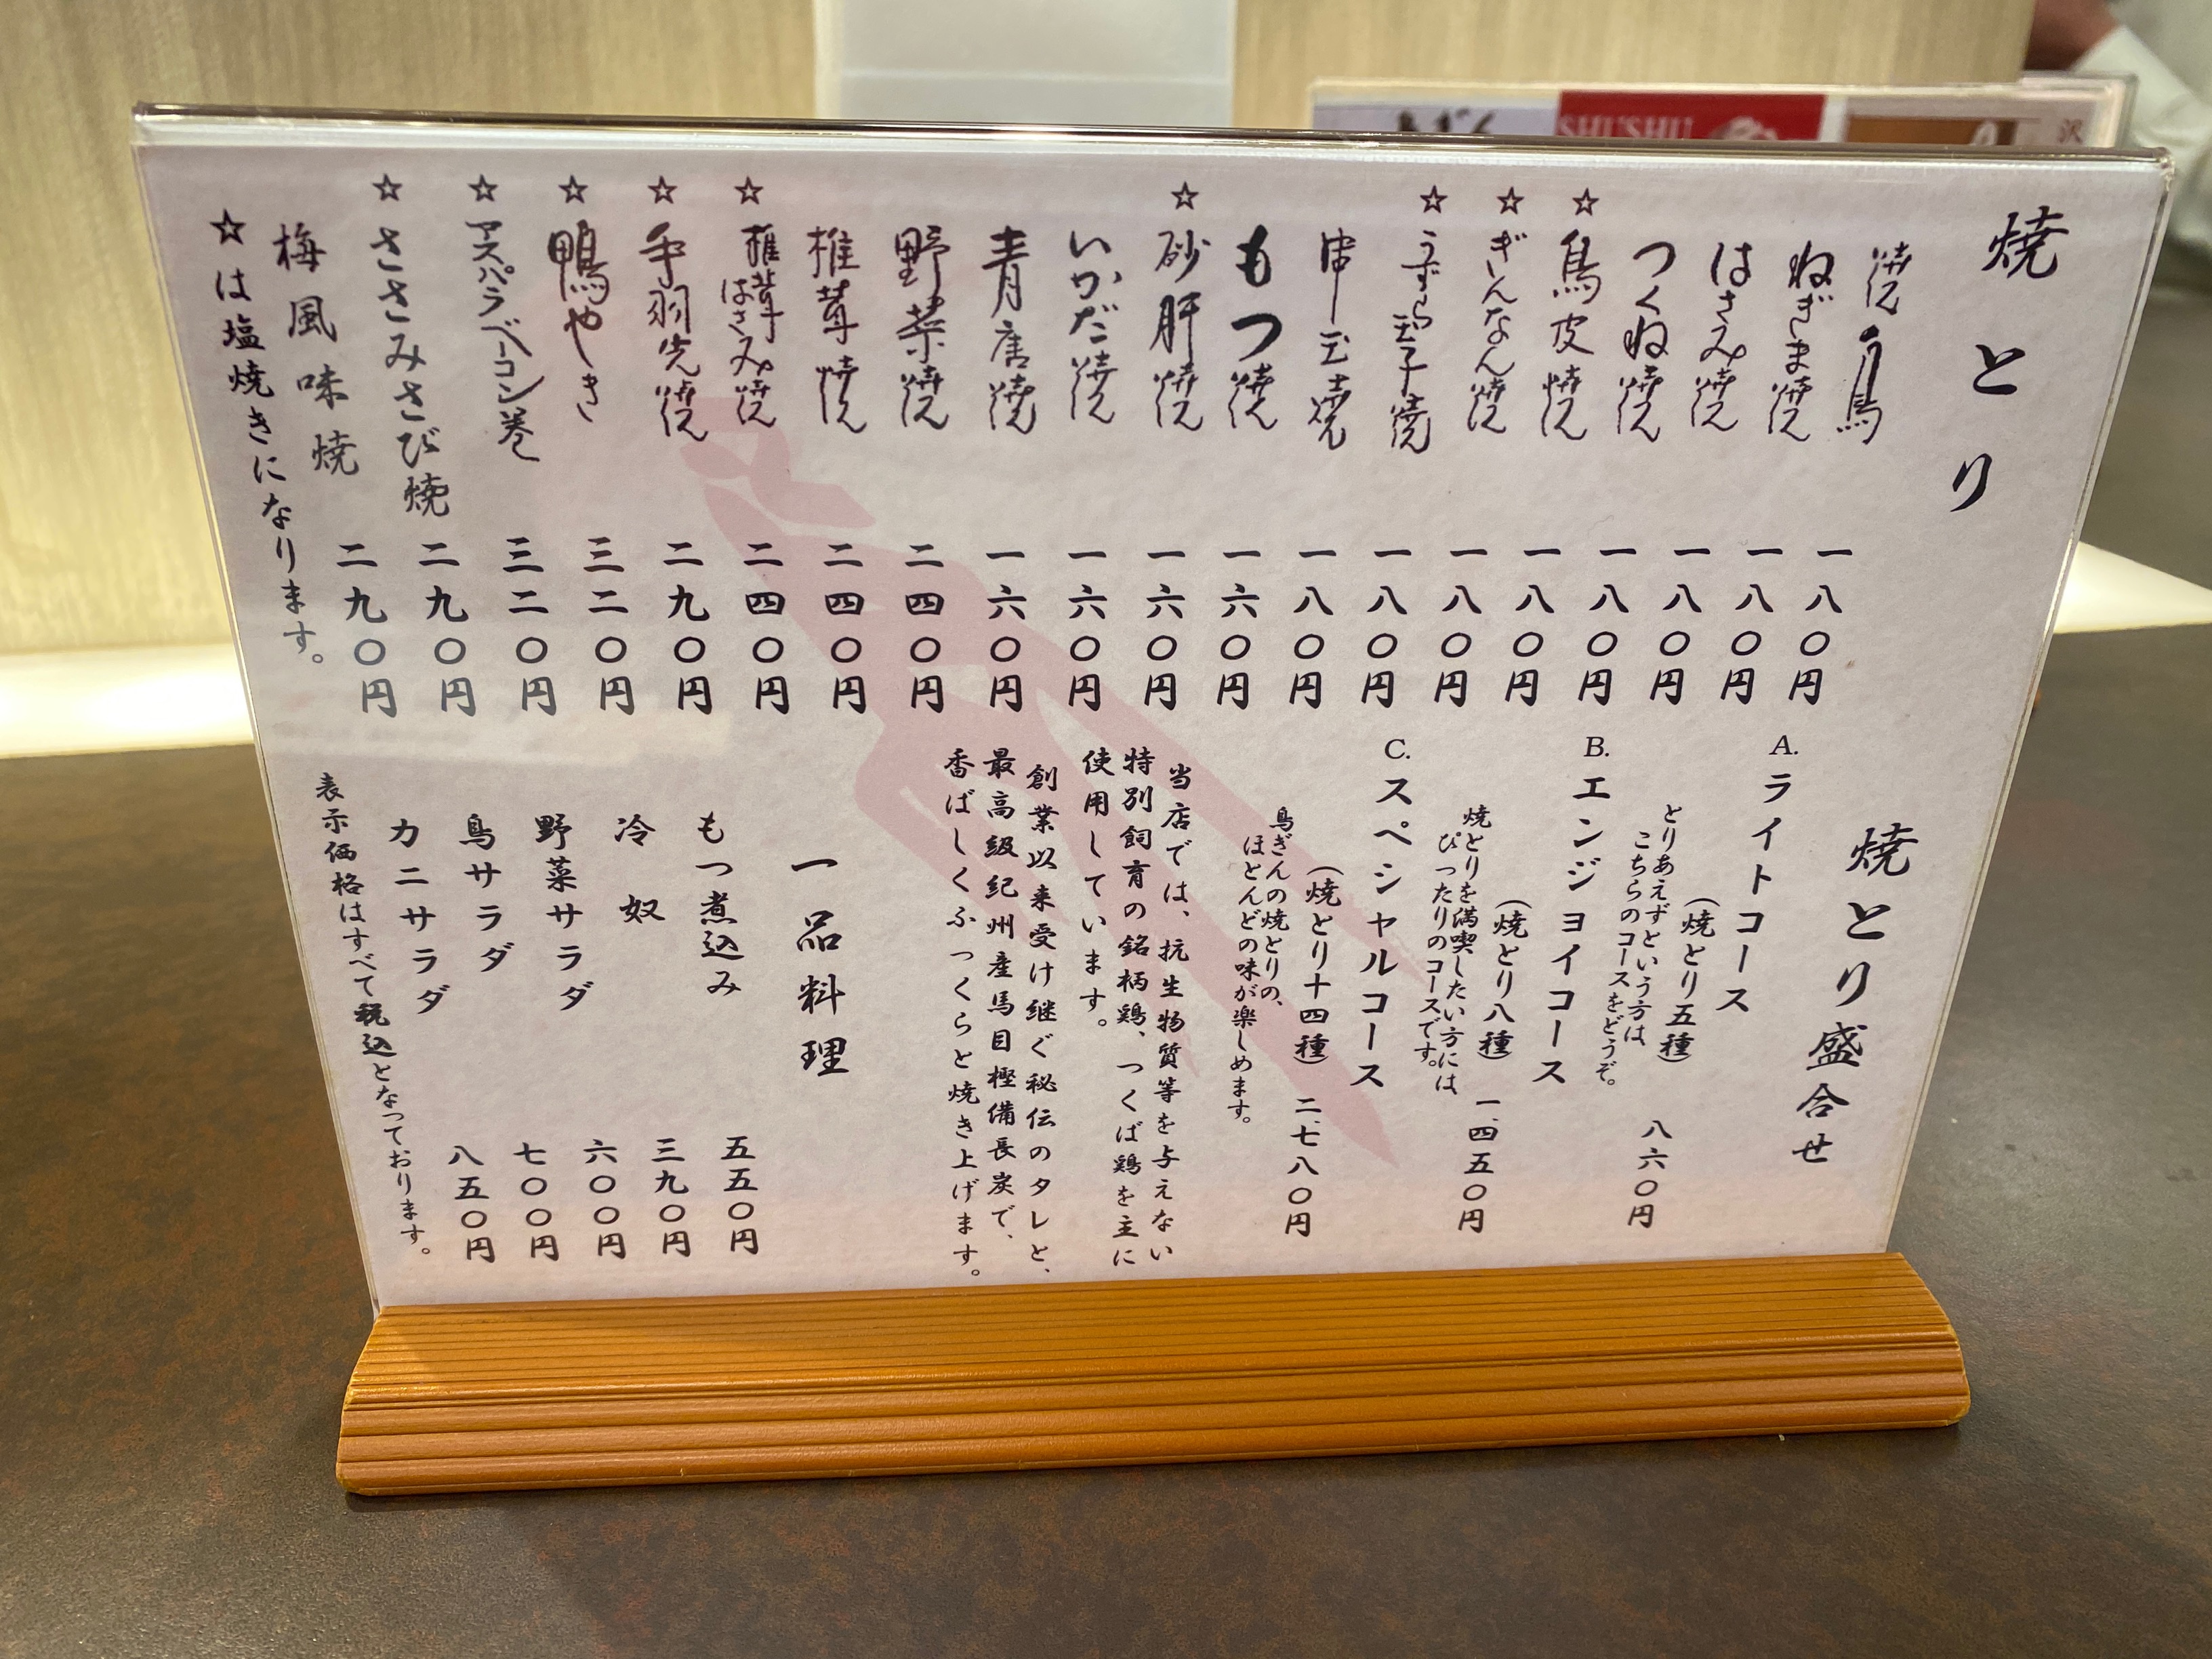 焼とり
焼鳥 一八〇円
ねぎま焼 一八〇円
はさみ焼 一八〇円
つくね焼 一八〇円
☆鳥皮焼 一八〇円
☆ぎんなん焼 一八〇円
☆うずら玉子焼 一八〇円
串玉焼 一八〇円
もつ焼 一六〇円
☆砂肝焼 一六〇円
いかだ焼 一六〇円
青唐焼 一六〇円
野菜焼 二四〇円
椎茸焼 二四〇円
☆椎茸はさみ焼 二四〇円
☆手羽先焼 二九〇円
☆鴨やき 三二〇円
☆アスパラベーコン巻 三二〇円
☆ささみさび焼 二九〇円
梅風味焼 二九〇円
☆は塩焼きになります。
焼とり盛合せ
A.ライトコース
(焼とり五種) 八六〇円
とりあえずという方は
こちらのコースをどうぞ。
B.エンジョイコース
(焼とり八種) 一、四五〇円
焼とりを満喫したい方には
ぴったりのコースです。
C.スペシャルコース
(焼とり十四種) 二、七八〇円
鳥ぎんの焼とりの、
ほとんどの味が楽しめます。
当店では、抗生物質等を与えない
特別飼育の銘柄鶏、つくば鶏を主に
使用しています。
創業以来受け継ぐ秘伝のタレと、
最高級紀州産馬目樫備長炭で、
香ばしくふっくらと焼き上げます。
一品料理
もつ煮込み 五五〇円
冷奴 三九〇円
野菜サラダ 六〇〇円
鳥サラダ 七〇〇円
カニサラダ 八五〇円
表示価格はすべて税込となっております。
SHUSHU
沢